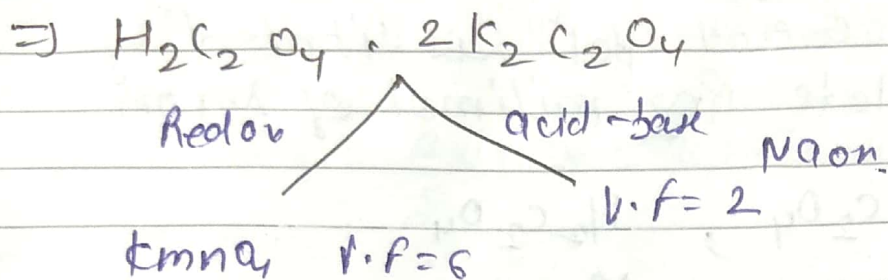 ⇒ H₂C₂O₄ . 2K₂C₂O₄
Redox acid-base
NaOH.
V.f = 2
KMnO₄ V.f = 6